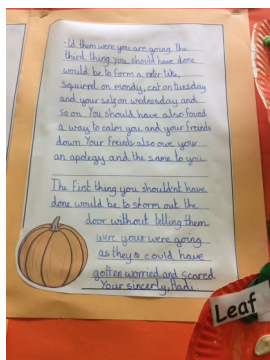 -ld them were you are going. The
third thing you should have done
would be to form a roter like,
squirrel on mondy, cat on tuesday
and your self on wednesday and
so on. You should have also found
a way to calm you and your freinds
down. Your freinds also owe you
an apolegy and the same to you.
The first thing you shouldnt have
done would be to storm out the
door without telling them
were your were going
as they could have
gotten worried and scared
Your sincerly, Hadi.
Leaf